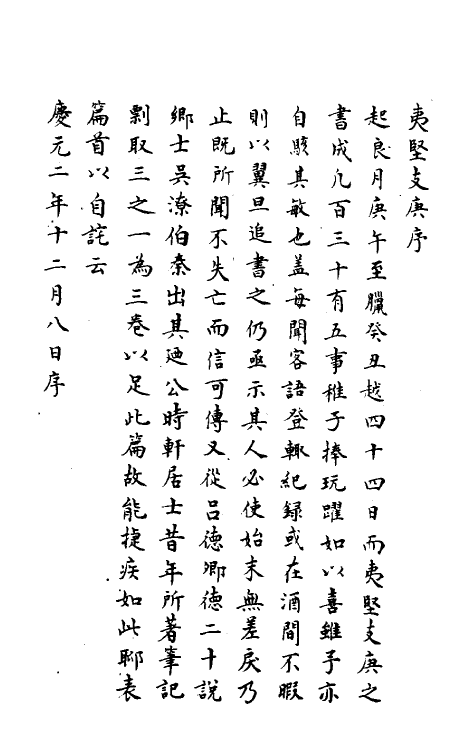 夷堅支庚序
起良月庚午至臘癸丑越四十四日而夷堅支庚之
書成凡百三十有五事稚子捧玩躍如以喜雖予亦
自駭其敏也盖每聞客語登輙紀録或在酒間不暇
則以翼旦追書之仍亟示其人必使始末無差戾乃
止既所聞不失亡而信可傳又從吕德卿德二十說
鄉士吳潦伯秦出其廼公時軒居士昔年所著筆記
剽取三之一為三卷以足此篇故能捷疾如此聊表
篇首以自詫云
慶元二年十二月八日序